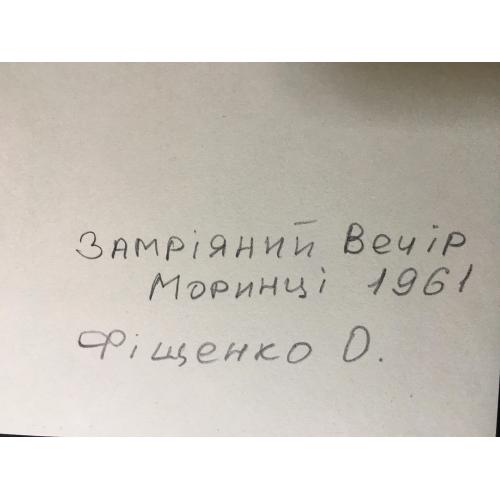 Замріяний Вечір
Моринці 1961
Фіщенко О.